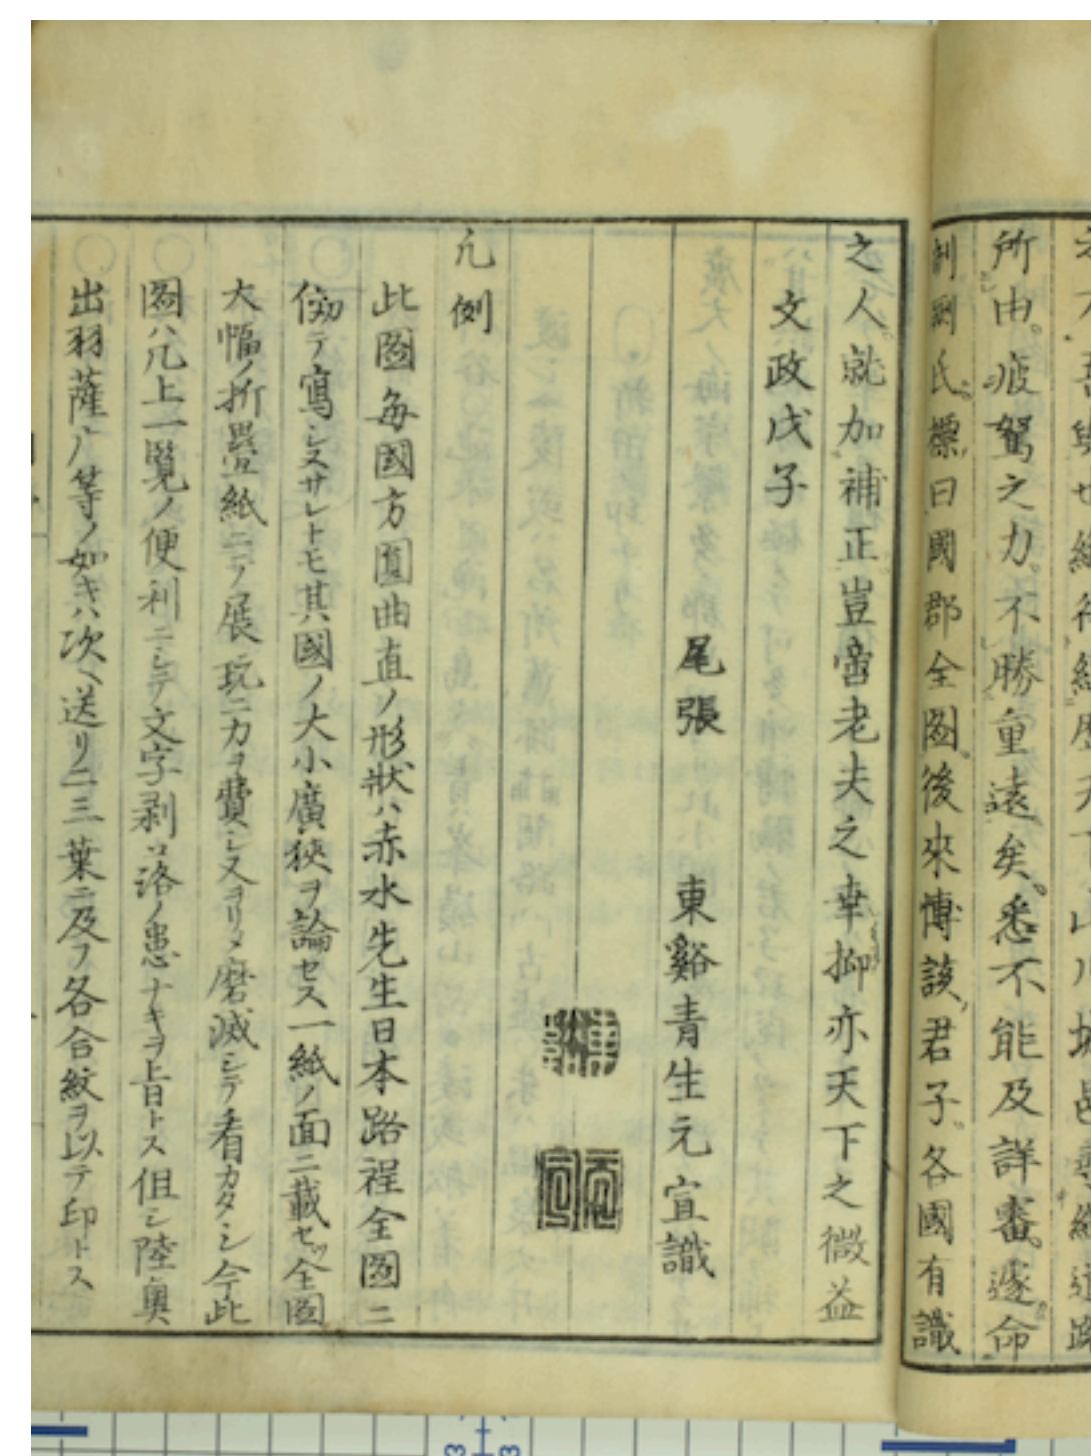 所由。疲駑之力。不勝重遠矣。悉不能及詳審。遂命
剞劂氏。標曰國郡全図。後來博該君子。各國有識
之人。就加補正豈啻老夫之幸抑亦天下之微益
文政戊子
尾張 東谿青生元宣識
凡例
此圖每國方圓曲直ノ形狀ハ赤水先生日本路程全圖ニ
倣テ寫シヌサレトモ其國ノ大小廣狹ヲ論セス一紙ノ面ニ載セツ全圖
大幅ノ折疊紙ニテ展玩ニ力ヲ費シ又ヲリメ磨滅シテ看カタシ今此
圖ハ几上一覽ノ便利ニシテ文字剥落ノ患ナキヲ上旨トス但シ陸奥
出羽薩广等ノ如キハ次ヘ送リ二三葉ニ及フ各合紋ヲ以テ印トス